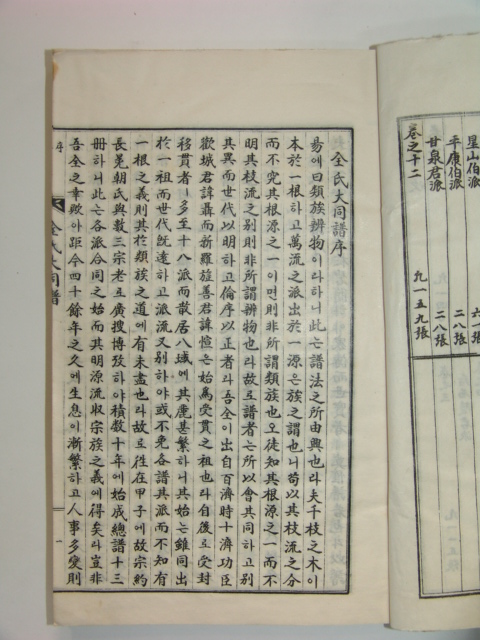 星山伯派
平康伯派 二八張
甘泉君派 二八張
卷之十二 九一五九張
全氏大同譜序
易에曰類族辨物이라하니此는譜法之所由興也라夫千枝之木이
本於一根하고萬流之派出於一源은族之謂也니苟以其枝流之分
而不究其根源之一이면則非所謂類族也오徒知其根源之一而不
明其枝流之別則非所謂辨物也라故로譜者는所以會其同하고別
其異而世代以明하고倫序以正者라吾全이出自百濟時十濟功臣
歡城君諱聶而新羅旌善君諱愃은始爲受貫之祖也라自後로受封
移貫者ㅣ多至十八派而散居八域에其麗甚繁하니其始는雖同出
於一祖而世代旣遠하고派流又別하야或不免各譜其派而不知有
一根之義則其於類族之道에有未盡也라故로徃在甲子에故宗約
長晃朝氏與數三宗老로廣搜博攷하야積數十年에始成總譜十三
冊하니此는各派合同之始而其明源流收宗族之義에得矣라豈非
吾全之幸歟아距今四十餘年之久에生息이漸繁하고人事多變則
序
全氏大同譜
一